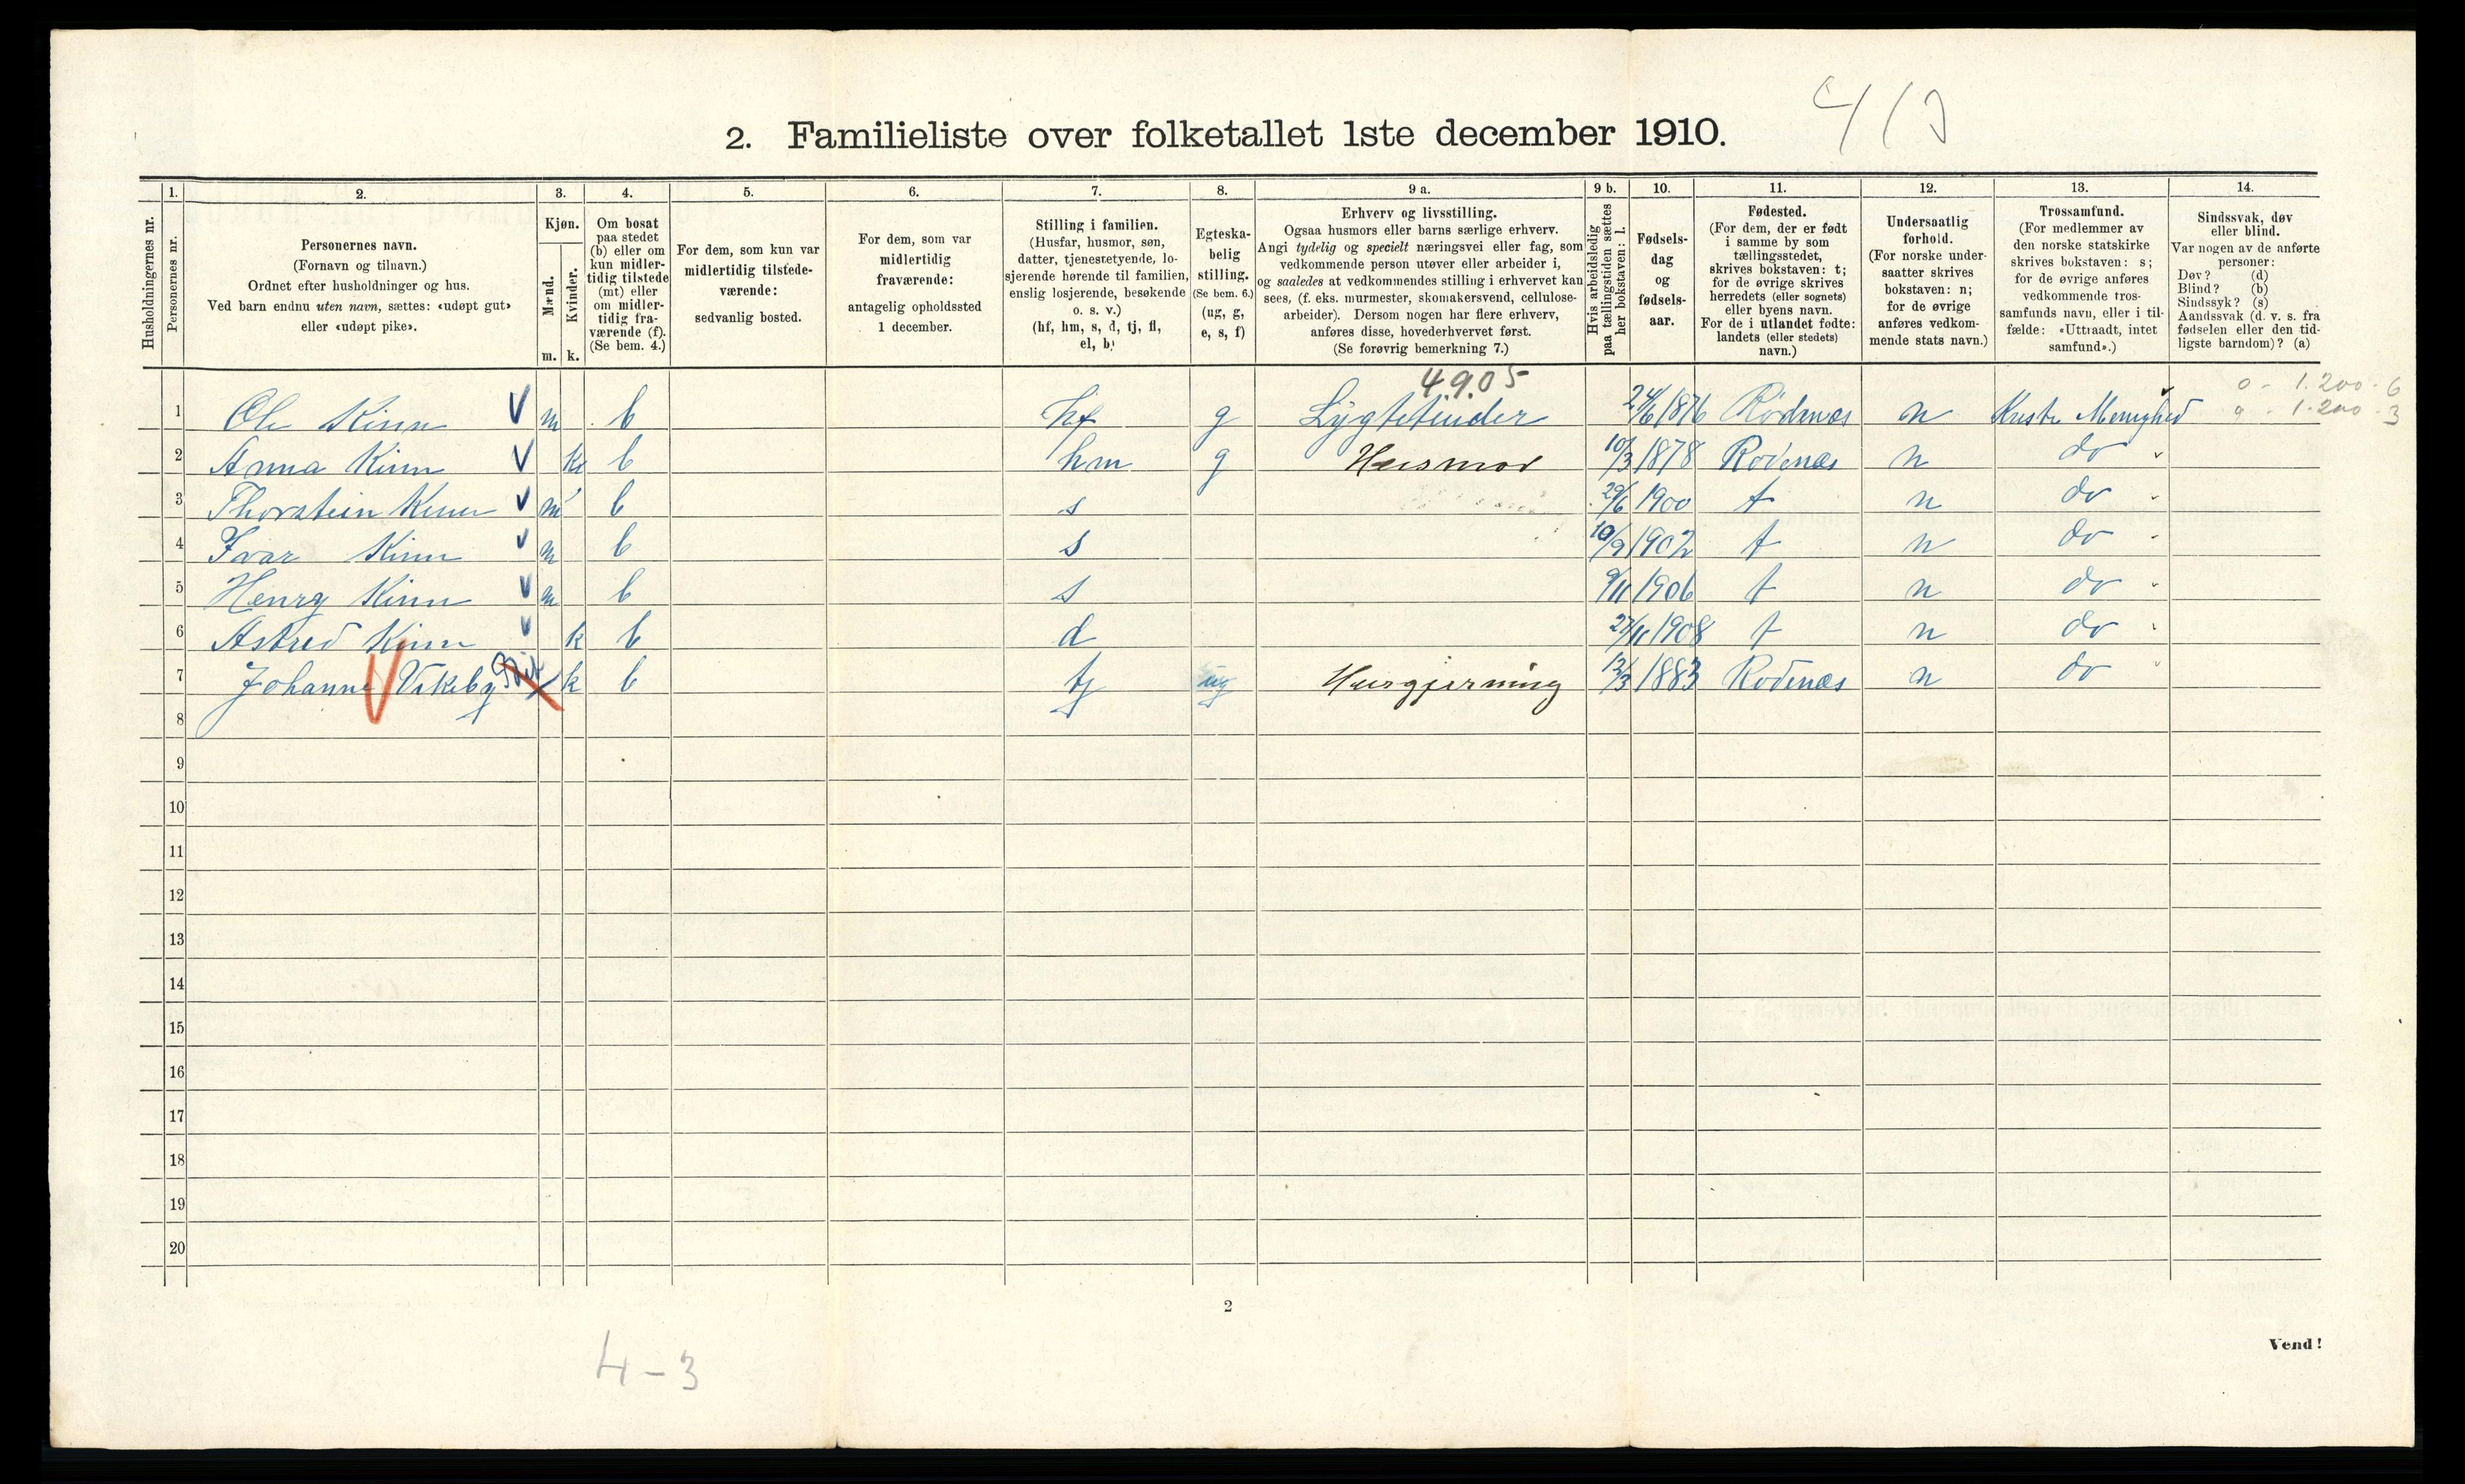 4/3
2. Familieliste over folketallet 1ste december 1910.
1. 2. 3. 4. 5. 6. 7. 8. 9 a. 9 b. 10. 11. 12. 13. 14.
Husholdningernes nr.
Personernes nr.
Personernes navn.
(Fornavn og tilnavn.)
Ordnet efter husholdninger og hus.
Ved barn endnu uten navn, sættes: «udøpt gut»
eller «udøpt pike».
Kjøn.
Mænd.
Kvinder.
m. k.
Om bosat
paa stedet
(b) eller om
kun midler-
tidig tilstede
(mt) eller
om midler-
tidig fra-
værende (f).
(Se bem. 4.)
For dem, som kun var
midlertidig tilstede-
værende:
sedvanlig bosted.
For dem, som var
midlertidig
fraværende:
antagelig opholdssted
1 december.
Stilling i familien.
(Husfar, husmor, søn,
datter, tjenestetyende, lo-
sjerende hørende til familien,
enslig losjerende, besøkende
o. s. v.)
(hf, hm, s, d, tj, fl,
el, b)
Egteska-
belig
stilling.
(Se bem. 6.)
(ug, g,
e, s, f)
Erhverv og livsstilling.
Ogsaa husmors eller barns særlige erhverv.
Angi tydelig og specielt næringsvei eller fag, som
vedkommende person utøver eller arbeider i,
og saaledes at vedkommendes stilling i erhvervet kan
sees, (f. eks. murmester, skomakersvend, cellulose-
arbeider). Dersom nogen har flere erhverv,
anføres disse, hovederhvervet først.
(Se forøvrig bemerkning 7.)
Hvis arbeidsledig
paa tællingstiden sættes
her bokstaven: l.
Fødsels-
dag
og
fødsels-
aar.
Fødested.
(For dem, der er født
i samme by som
tællingsstedet,
skrives bokstaven: t;
for de øvrige skrives
herredets (eller sognets)
eller byens navn.
For de i utlandet fødte:
landets (eller stedets)
navn.)
Undersaatlig
forhold.
(For norske under-
saatter skrives
bokstaven: n;
for de øvrige
anføres vedkom-
mende stats navn.)
Trossamfund.
(For medlemmer av
den norske statskirke
skrives bokstaven: s;
for de øvrige anføres
vedkommende tros-
samfunds navn, eller i til-
fælde: «Uttraadt, intet
samfund».)
Sindssvak, døv
eller blind.
Var nogen av de anførte
personer:
Døv? (d)
Blind? (b)
Sindssyk? (s)
Aandssvak (d. v. s. fra
fødselen eller den tid-
ligste barndom)? (a)
4905
o - 1.200 - 6
1 Ole Kinn V m b hf g Lygtetænder 24/6 1876 Rødenæs n Kristi Menighed
1.200 - 3
2 Anna Kinn V k b hm g Husmor 10/3 1878 Rødenæs n do
3 Thorstein Kinn V m b s 29/6 1900 t n do
4 Ivar Kinn V m b s 10/9 1902 t n do
5 Henry Kinn V m b s 9/11 1906 t n do
6 Astrid Kinn V k b d 27/11 1908 t n do
7 Johanne Vikeby k b tj ug Husgjerning 13/3 1883 Rødenæs n do
8
9
10
11
12
13
14
15
16
17
18
19
20
2
Vend!
4-3